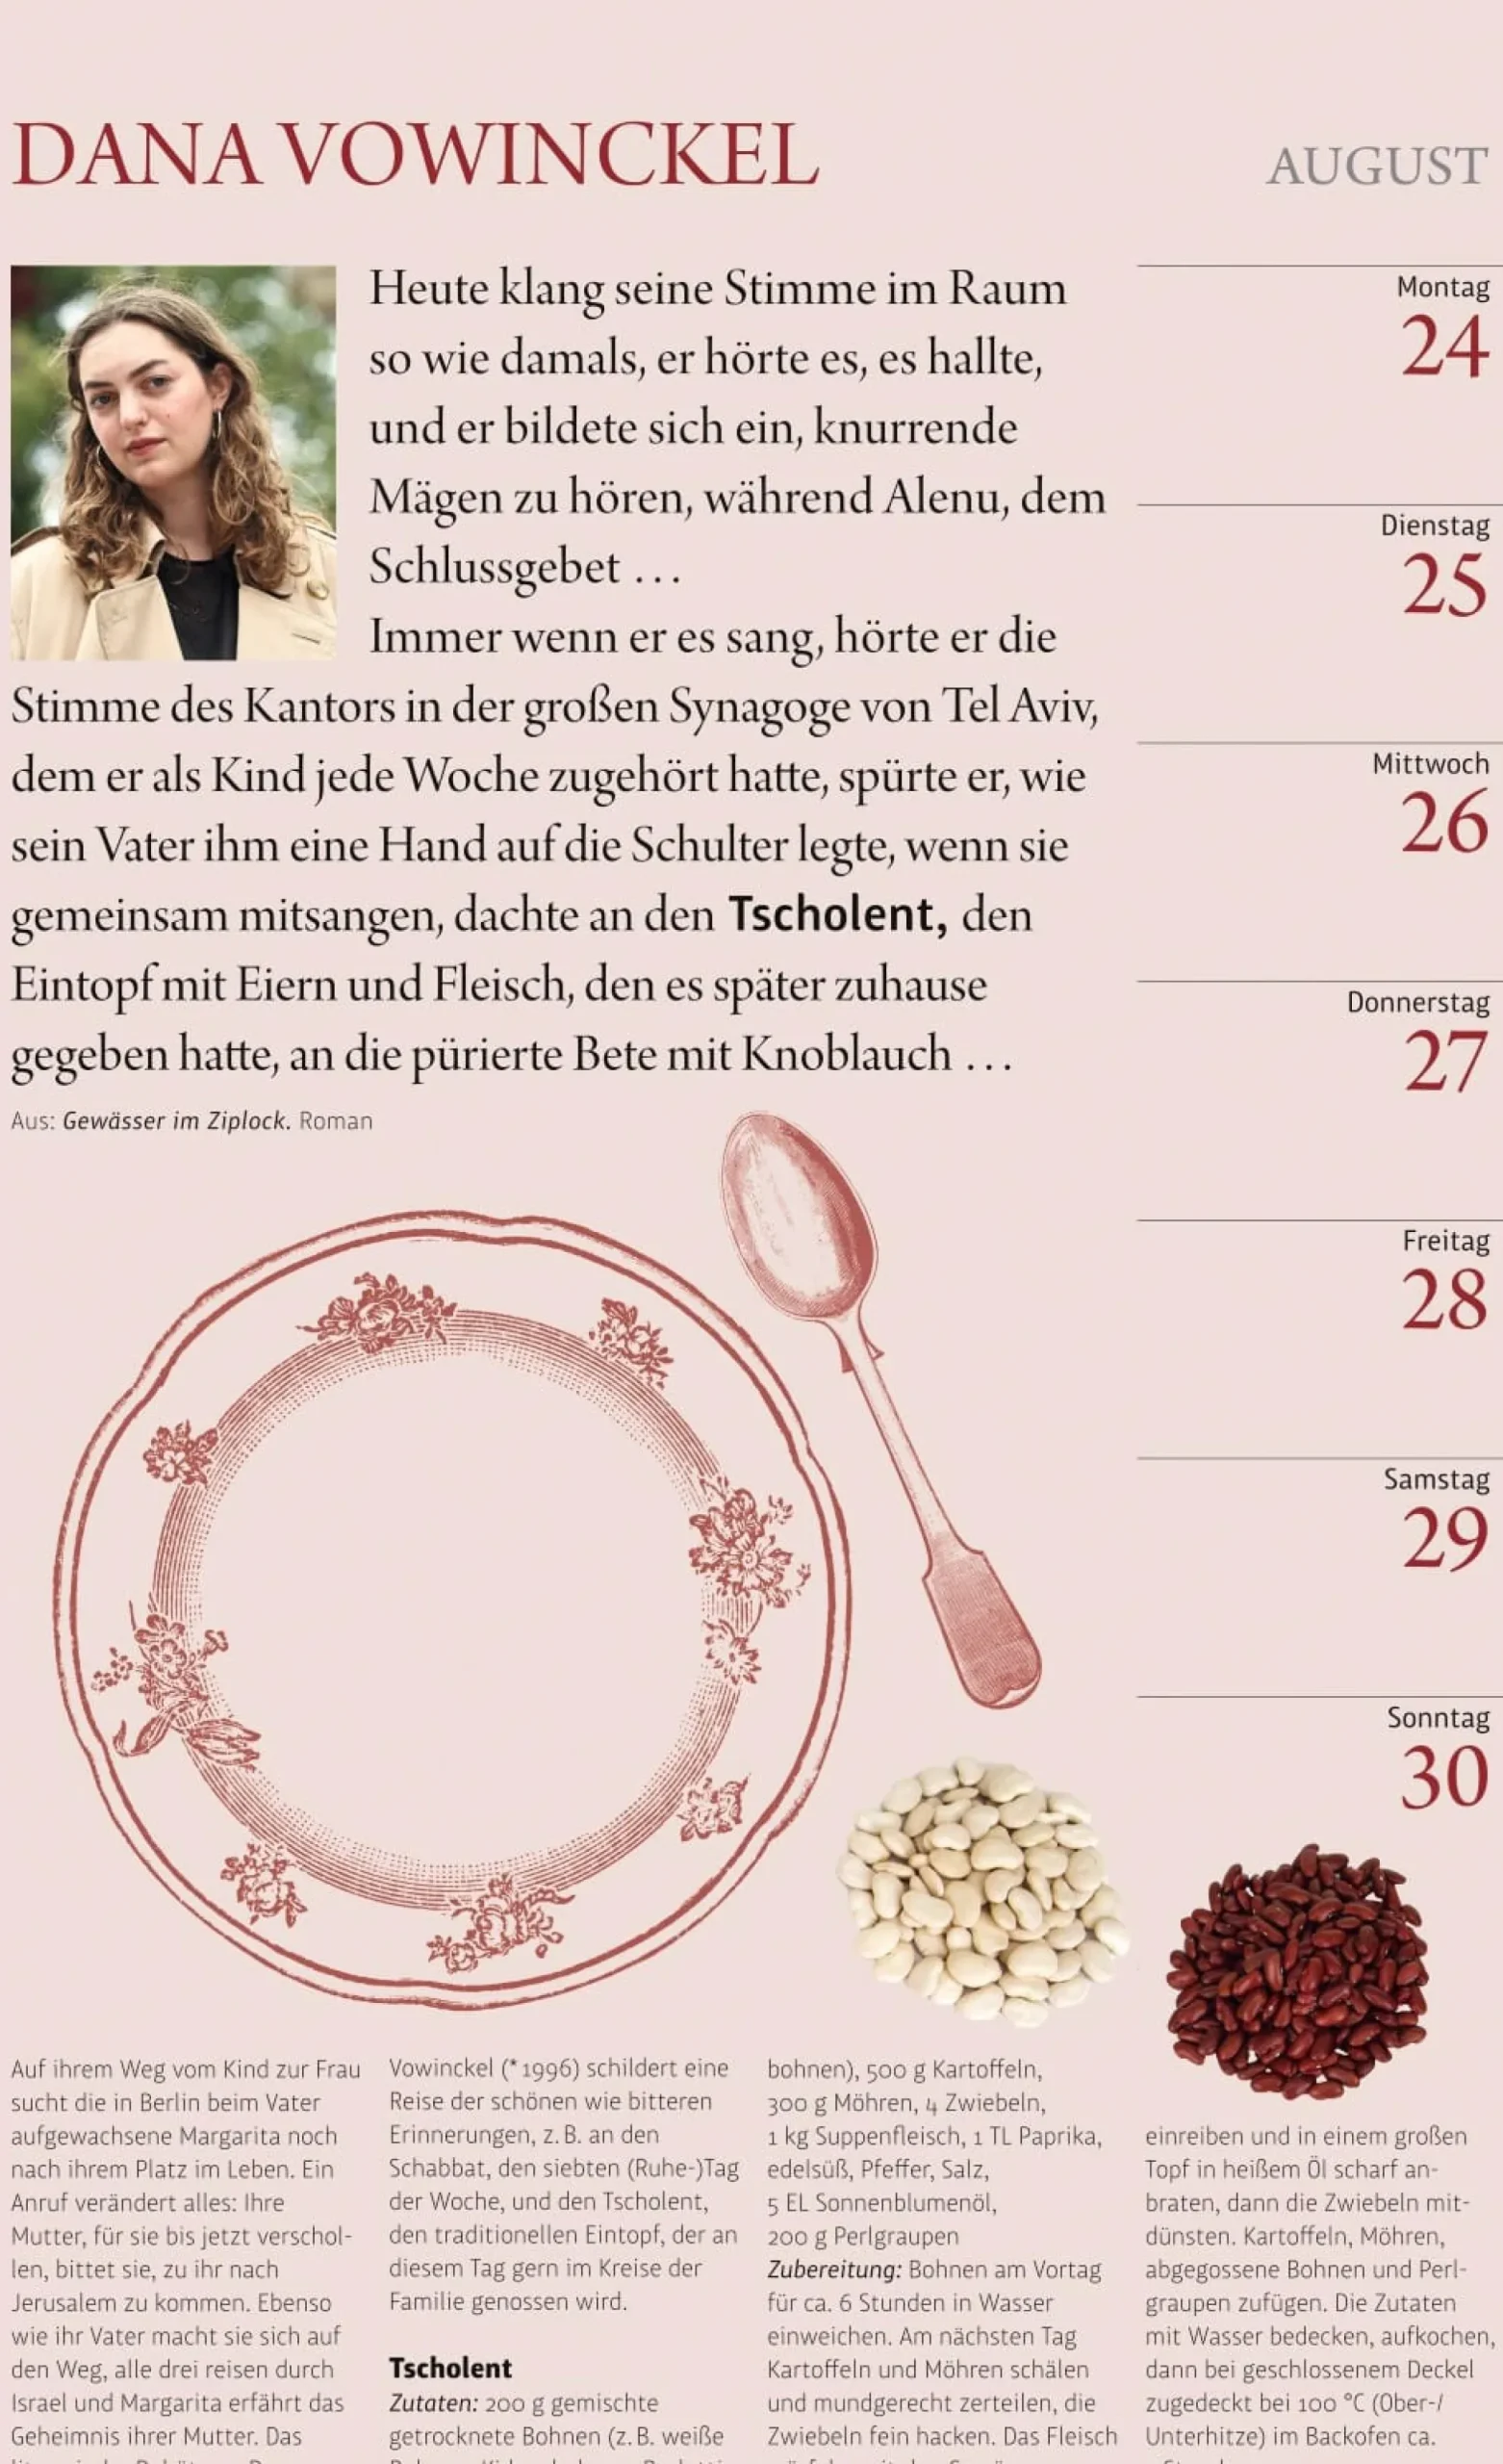 DANA VOWINCKEL
AUGUST
Heute klang seine Stimme im Raum
so wie damals, er hörte es, es hallte,
und er bildete sich ein, knurrende
Mägen zu hören, während Alenu, dem
Schlussgebet ...
Immer wenn er es sang, hörte er die
Stimme des Kantors in der großen Synagoge von Tel Aviv,
dem er als Kind jede Woche zugehört hatte, spürte er, wie
sein Vater ihm eine Hand auf die Schulter legte, wenn sie
gemeinsam mitsangen, dachte an den Tscholent, den
Eintopf mit Eiern und Fleisch, den es später zuhause
gegeben hatte, an die pürierte Bete mit Knoblauch ...
Aus: Gewässer im Ziplock. Roman
Montag
24
Dienstag
25
Mittwoch
26
Donnerstag
27
Freitag
28
Samstag
29
Sonntag
30
Auf ihrem Weg vom Kind zur Frau
sucht die in Berlin beim Vater
aufgewachsene Margarita noch
nach ihrem Platz im Leben. Ein
Anruf verändert alles: Ihre
Mutter, für sie bis jetzt verschol-
len, bittet sie, zu ihr nach
Jerusalem zu kommen. Ebenso
wie ihr Vater macht sie sich auf
den Weg, alle drei reisen durch
Israel und Margarita erfährt das
Geheimnis ihrer Mutter. Das
Vowinckel (* 1996) schildert eine
Reise der schönen wie bitteren
Erinnerungen, z. B. an den
Schabbat, den siebten (Ruhe-)Tag
der Woche, und den Tscholent,
den traditionellen Eintopf, der an
diesem Tag gern im Kreise der
Familie genossen wird.
Tscholent
Zutaten: 200 g gemischte
getrocknete Bohnen (z. B. weiße
bohnen), 500 g Kartoffeln,
300 g Möhren, 4 Zwiebeln,
1 kg Suppenfleisch, 1 TL Paprika,
edelsüß, Pfeffer, Salz,
5 EL Sonnenblumenöl,
200 g Perlgraupen
Zubereitung: Bohnen am Vortag
für ca. 6 Stunden in Wasser
einweichen. Am nächsten Tag
Kartoffeln und Möhren schälen
und mundgerecht zerteilen, die
Zwiebeln fein hacken. Das Fleisch
einreiben und in einem großen
Topf in heißem Öl scharf an-
braten, dann die Zwiebeln mit-
dünsten. Kartoffeln, Möhren,
abgegossene Bohnen und Perl-
graupen zufügen. Die Zutaten
mit Wasser bedecken, aufkochen,
dann bei geschlossenem Deckel
zugedeckt bei 100 °C (Ober-/
Unterhitze) im Backofen ca.